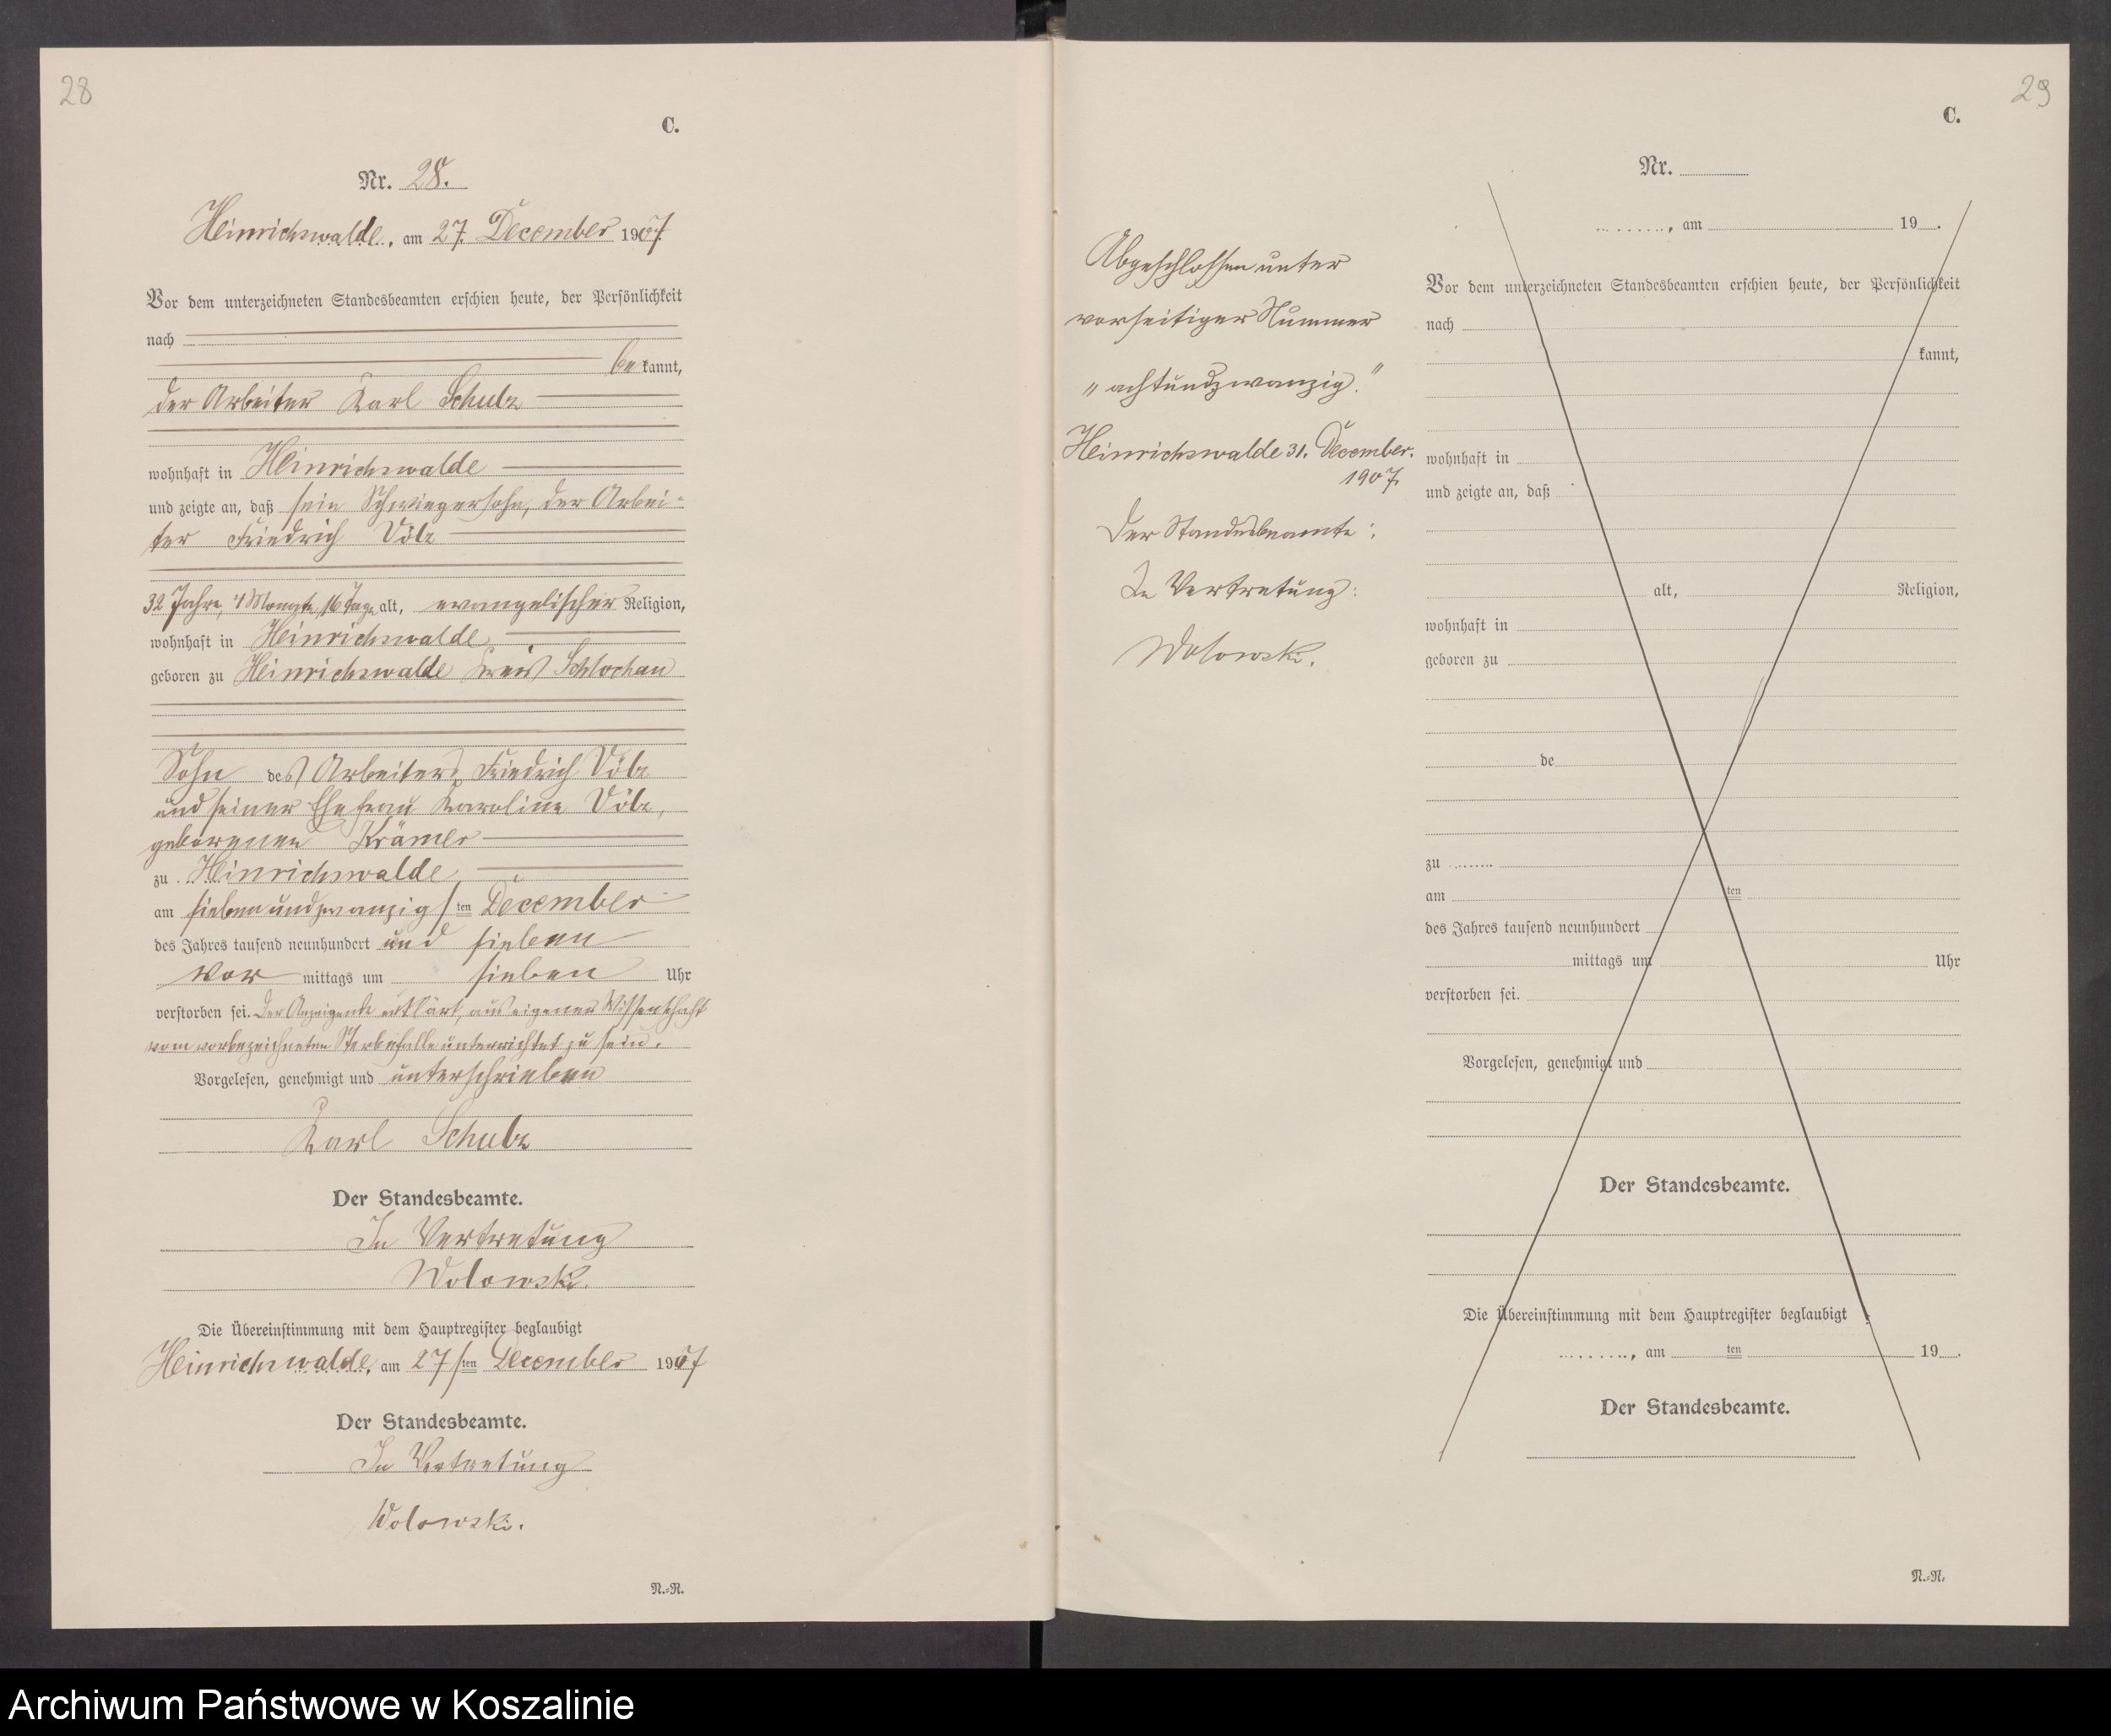 28
C.
Nr. 28.
Heinrichswalde, am 27. December 1907.
Vor dem unterzeichneten Standesbeamten erschien heute, der Persönlichkeit
nach
be kannt,
der Arbeiter Karl Schulz
wohnhaft in Heinrichswalde
und zeigte an, daß sein Schwiegersohn, der Arbei-
ter Friedrich Völz
32 Jahre, 4 Monate, 16 Tage alt, evangelischer Religion,
wohnhaft in Heinrichswalde
geboren zu Heinrichswalde Kreis Schlochau
Sohn des Arbeiters Friedrich Völz
und seiner Ehefrau Karoline Völz,
geborenen Krämer
zu Heinrichswalde
am siebenundzwanzigsten December
des Jahres tausend neunhundert und sieben
Vor mittags um sieben Uhr
verstorben sei. Der Anzeigende erklärt, aus eigener Wissenschaft
vom vorbezeichneten Sterbefalle unterrichtet zu sein.
Vorgelesen, genehmigt und unterschrieben
Karl Schulz
Der Standesbeamte.
In Vertretung
Wolowski.
Die Übereinstimmung mit dem Hauptregister beglaubigt
Heinrichswalde, am 27sten December 1907
Der Standesbeamte.
In Vertretung
Wolowski.
N.-N.
29
C.
Nr.
, am 19 .
Abgeschlossen unter
vorseitiger Nummer
„achtundzwanzig."
Heinrichswalde 31. December.
1907.
Der Standesbeamte:
In Vertretung:
Wolowski.
Vor dem unterzeichneten Standesbeamten erschien heute, der Persönlichkeit
nach
kannt,
wohnhaft in
und zeigte an, daß
alt, Religion,
wohnhaft in
geboren zu
de
zu
am ten
des Jahres tausend neunhundert
mittags um Uhr
verstorben sei.
Vorgelesen, genehmigt und
Der Standesbeamte.
Die Übereinstimmung mit dem Hauptregister beglaubigt
, am ten 19 .
Der Standesbeamte.
N.-N.
Archiwum Państwowe w Koszalinie